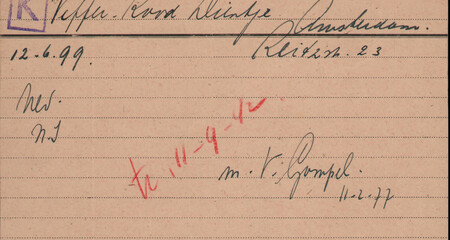 K Veffer-Rood Dientje Amsterdam.
12.6.99. Reitzst. 23
Ned.
N.I
tr. 11-9-42
m. V. Gompel.
11-2-77